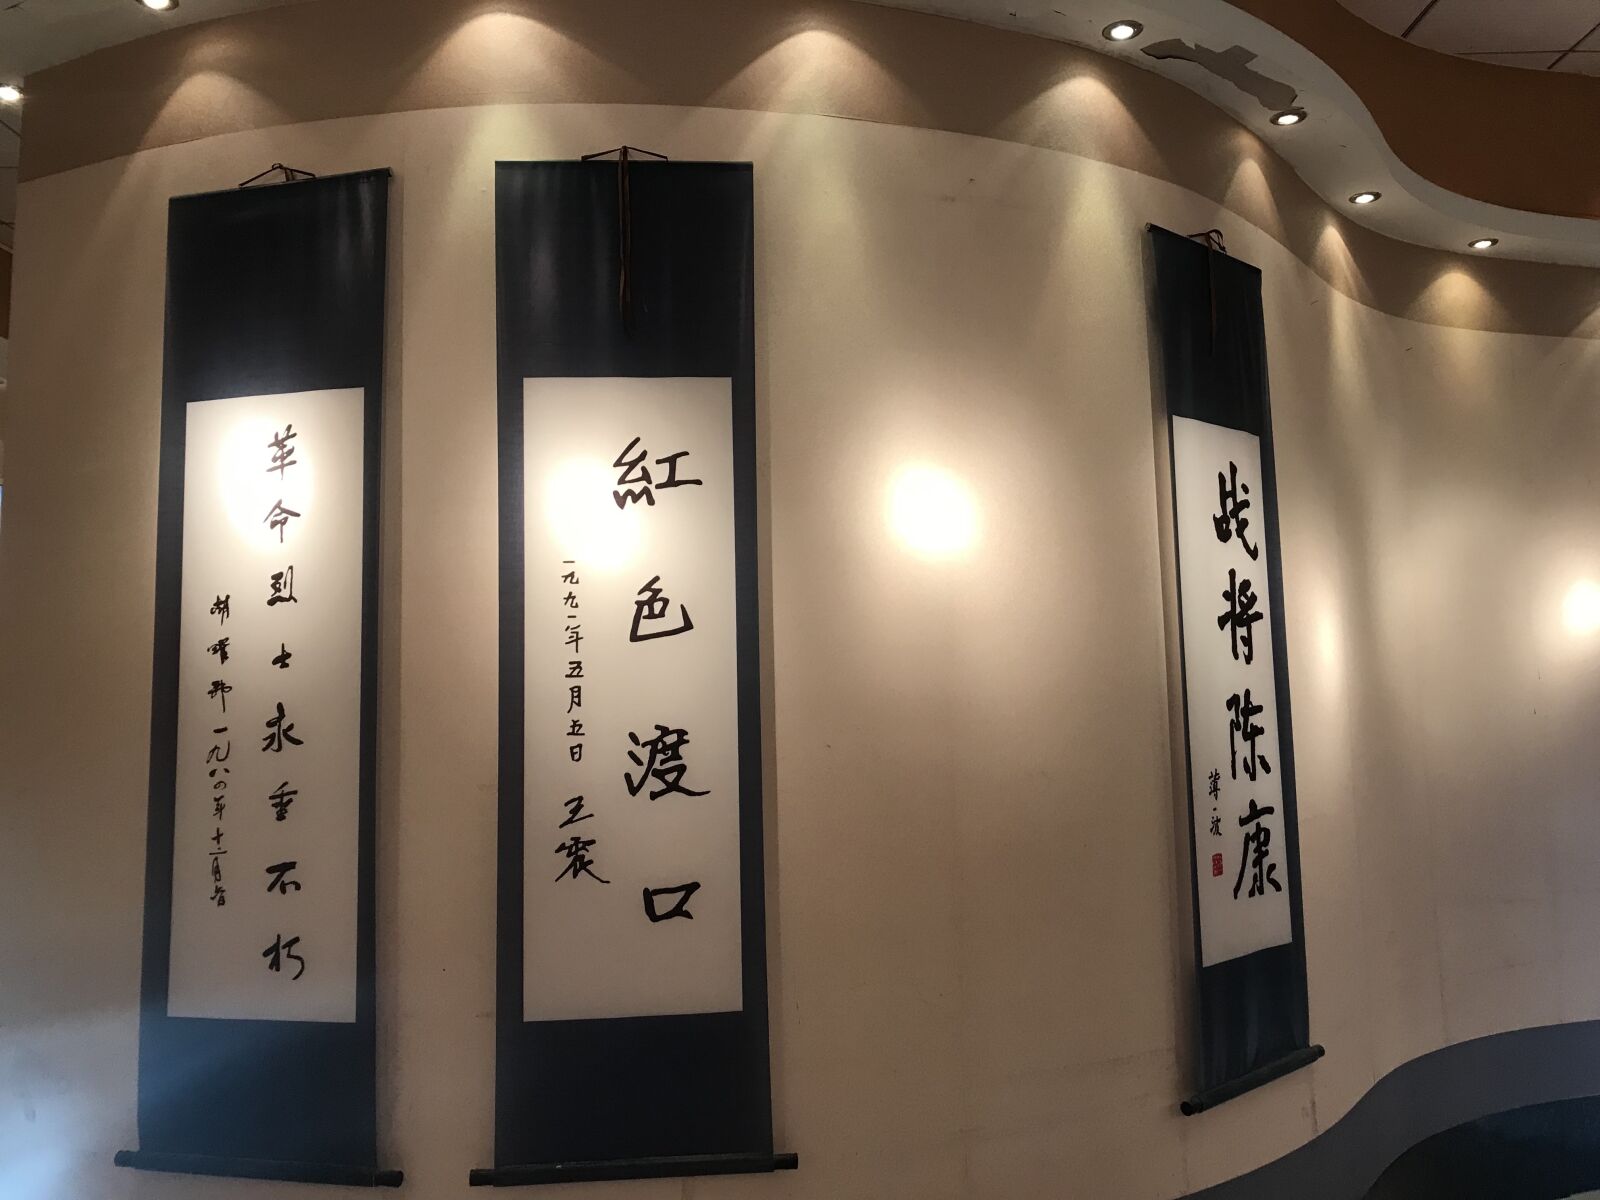 革命烈士永垂不朽
胡耀邦 一九八〇年十二月
紅色渡口
一九九一年五月五日 王震
战将陈康
薄一波